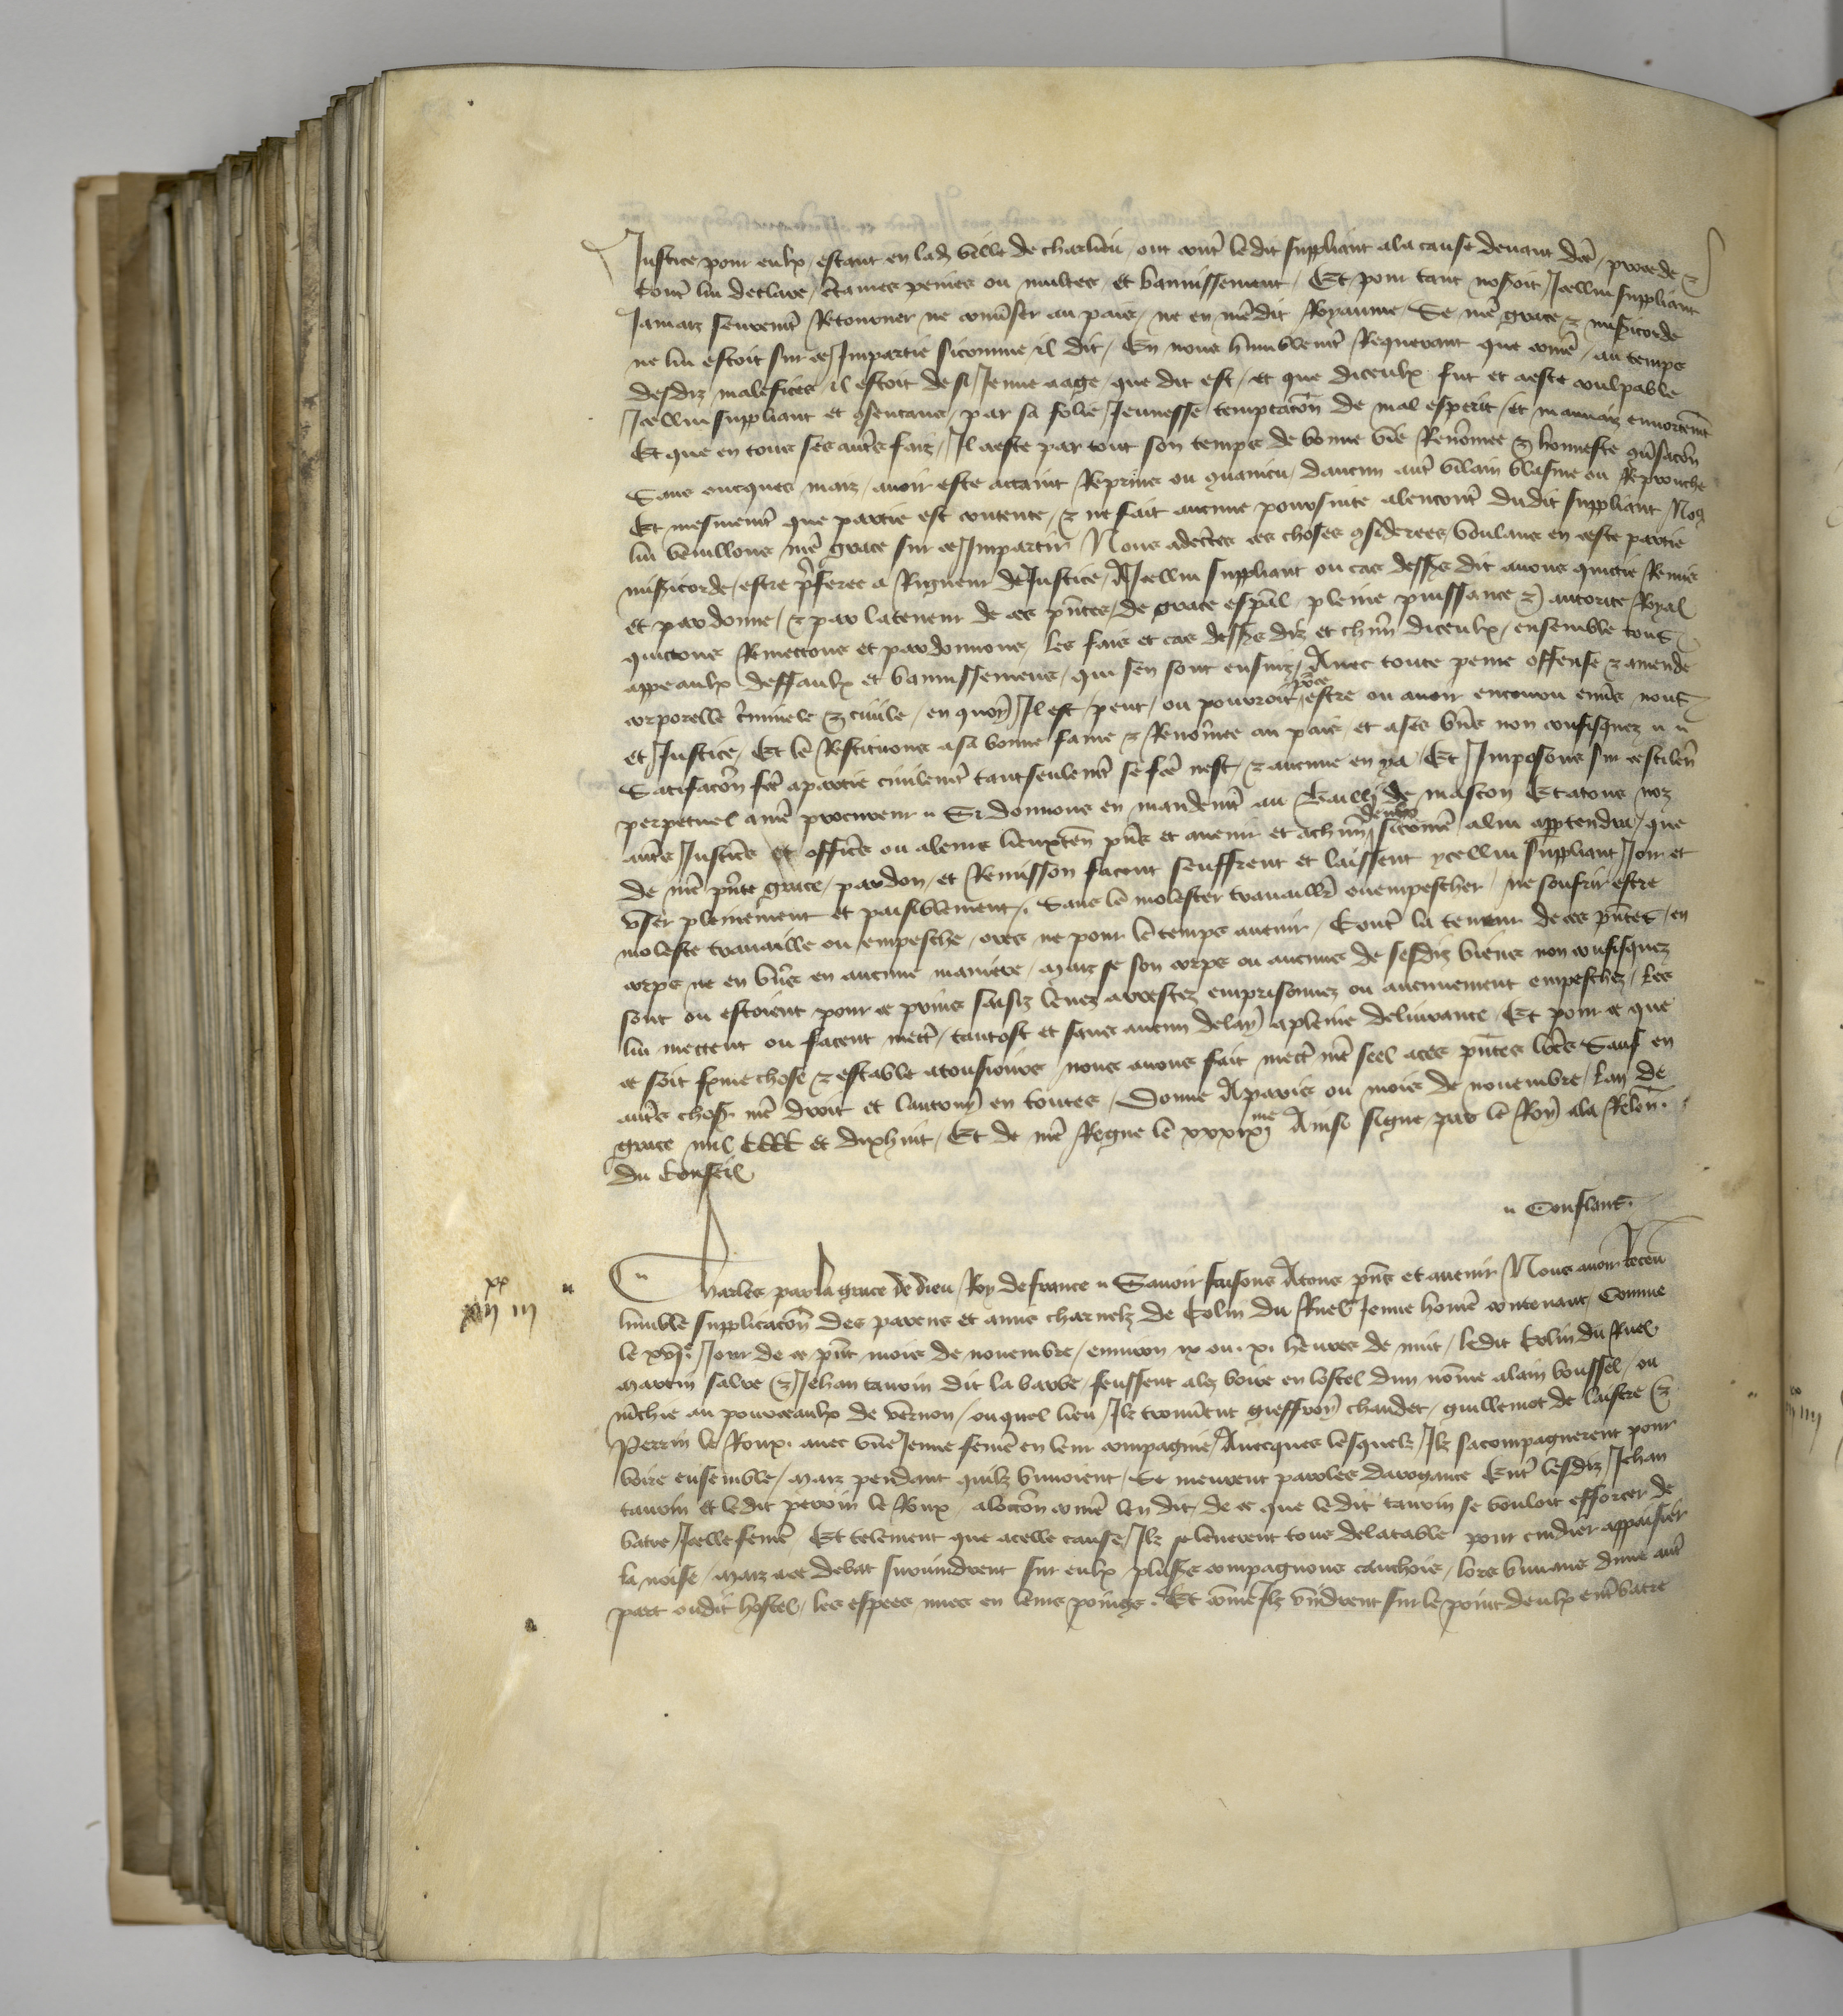 Justice pour eulx estant en lad ville de charlieu ont contre ledit suppliant a la cause devant dicte procede et
contre lui declare certaines peines ou multes et bannissement Et pour tant nosoit Icellui suppliant
Jamaiz seurement Retourner ne converser au pais ne en nostre dit Royaume Se nostre grace et misericorde
ne lui estoit sur ce Impartie sicomme il dit En nous humblement Requerant que comme au temps
desdiz malefices il estoit de si Jeune aage que dit est et que diceulx fut et a este coulpable
Icellui suppliant et consentans par sa folie Jeunesse temptacion de mal esperit et mauvaiz enortement
Et que en tous ses autres faiz Il a este par tout son temps de bonne vie Renommee et honneste conversacion
Sans oncques maiz avoir este attaint Reprins ou convaincu daucun autre villain blasme ou Reprouche
Et mesmement que partie est contente et ne fait aucune poursuite alencontre dudit suppliant Nous
lui vueillons nostre grace sur ce Impartir Nous adecertes ces choses considerees voulans en ceste partie
misericorde estre preferee a Rigueur de Justice A Icellui suppliant ou cas dessus dit avons quictie Remis
et pardonne et par la teneur de ces presentes de grace especial pleine puissance et autorite Royal
quictons Remectons et pardonnons les fais et cas dessus diz et chascun diceulx ensemble tous
appeaulx deffaulx et bannissemens qui sen sont ensuiz Avec toute peine offense et amende
corporelle criminele et civile en quoy Il est peut ou pourroit pour ce estre ou avoir encouru envers nous
et Justice Et le Restituons a sa bonne fame et Renommee au pais et a ses biens non confisquez
Satisfacion faicte a partie civilement tant seulement se faicte nest et aucune en y a Et Imposons sur ce silence
perpetuel a nostre procureur Si donnons en mandement au Bailli de mascon Et a tous noz
autres Justiciers et officiers ou a leurs lieuxtenans presens et avenir et a chascun deulx sicomme a lui appartendra que
de nostre presente grace pardon et Remission facent seuffrent et laissent ycellui suppliant Joir et
user pleinement et paisiblement Sans le molester travaillier ou empescher ne soufrir estre
moleste travaillie ou empesche ores ne pour le temps avenir Contre la teneur de ces presentes en
corps ne en biens en aucune maniere maiz se son corps ou aucuns de sesdiz biens non confisquez
sont ou estoient pour ce prins saisiz levez arrestez emprisonnez ou aucunement empeschez les
lui mectent ou facent mectre tantost et sans aucun delay a pleine delivrance Et pour ce que
ce soit ferme chose et estable a tousiours nous avons fait mectre nostre seel a ces presentes lettres Sauf en
autres choses nostre droit et lautruy en toutes Donne A paris ou mois de novembre Lan de
grace mil CCCC et dixhuit Et de nostre Regne le xxxixme Ainsi signe par le Roy a la Relacion
du Conseil
Conflans
xx
iiii iii
Charles par la grace de dieu Roy de france Savoir faisons A tous presens et avenir Nous avoir Receu
lumble supplicacion des parens et amis charnelz de Colin du Ruel Jeune homme contenant Comme
le xvje Jour de ce present mois de novembre environ ix ou x heures de nuit ledit Colin du Ruel
martin salve et Jehan tauvin dit la barbe feussent alez boire en lostel dun nomme alain boussel ou
marchie au pourceaulx de vernon ouquel lieu Ilz trouverent gieffroy chandet guillemot de laistre et
Perrin le Roux avec une Jeune femme en leur compagnie Avecques lesquelz Ilz sacompagnerent pour
boire ensemble maiz pendant quilz buvoient Se meurent paroles darrogance Entre lesdiz Jehan
tauvin et ledit perrin le Roux a loccasion comme len dit de ce que ledit tauvin se vouloit efforcer de
batre Icelle femme Et telement que a celle cause Ilz se leverent tous de la table pour cuidier appaisier
la noise maiz a ce debat survindrent sur eulx plusieurs compagnons cauchois lors buvans dune autre
part oudit hostel les espees nues en leurs poings Et comme Ilz vindrent sur le point deulx entrebatre